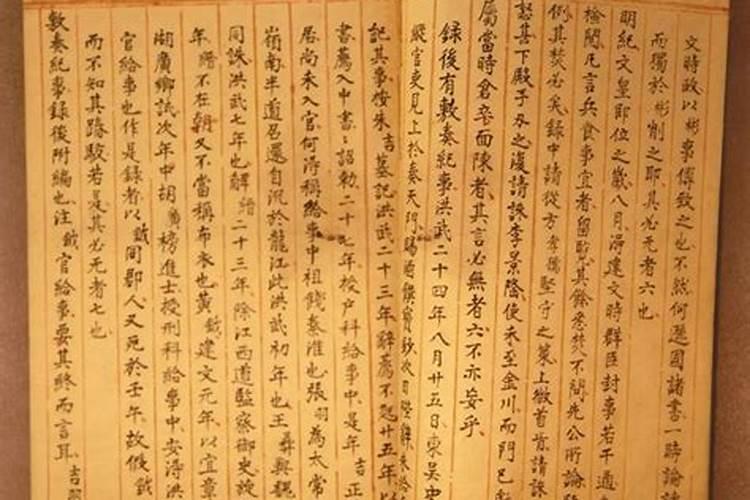 文時故以彬事傅致之也不然何歷國諸書一時論
而獨於彬削之耶其必无者六也
明紀文皇即位之歲八月得建文時群臣封事若干通
檢閱凡言兵食事宜者留覽其餘悉焚不問先公所論
例其焚必矣錄中請從方孝孺堅守之策上徵首肯請誅
恕甚下殿手刃之復請誅李景隆使未至金川而門已
屬當時倉卒面陳者其言必無者六不亦安乎
錄後有敷奏紀事洪武二十四年八月廿五日東吳史
縱官吏見上於奏天門賜酒饌寶鈔次日陛辭
記其事按朱吉墓記洪武二十三年辭薦不起廿五年
書薦入中書詔勅二十七年授户科給事中是年吉正
居尚未入官何得稱給事中祖餞秦淮也張羽為太常
嶺南半道召還自沉於龍江此洪武初年也王彝與魏
同誅洪武七年也解縉二十三年除江西道監察御史
年縉不在朝又不當稱布衣也黃鉞建文元年以宜章
湖廣鄉試次年中胡廣榜進士授刑科給事中安得洪
官給事也作是錄者以鉞同郡人又死於壬午故假鉞
而不知其踳駁若是其必无者七也
敷奏紀事錄後附編也注鉞官給事要其終而言耳吉